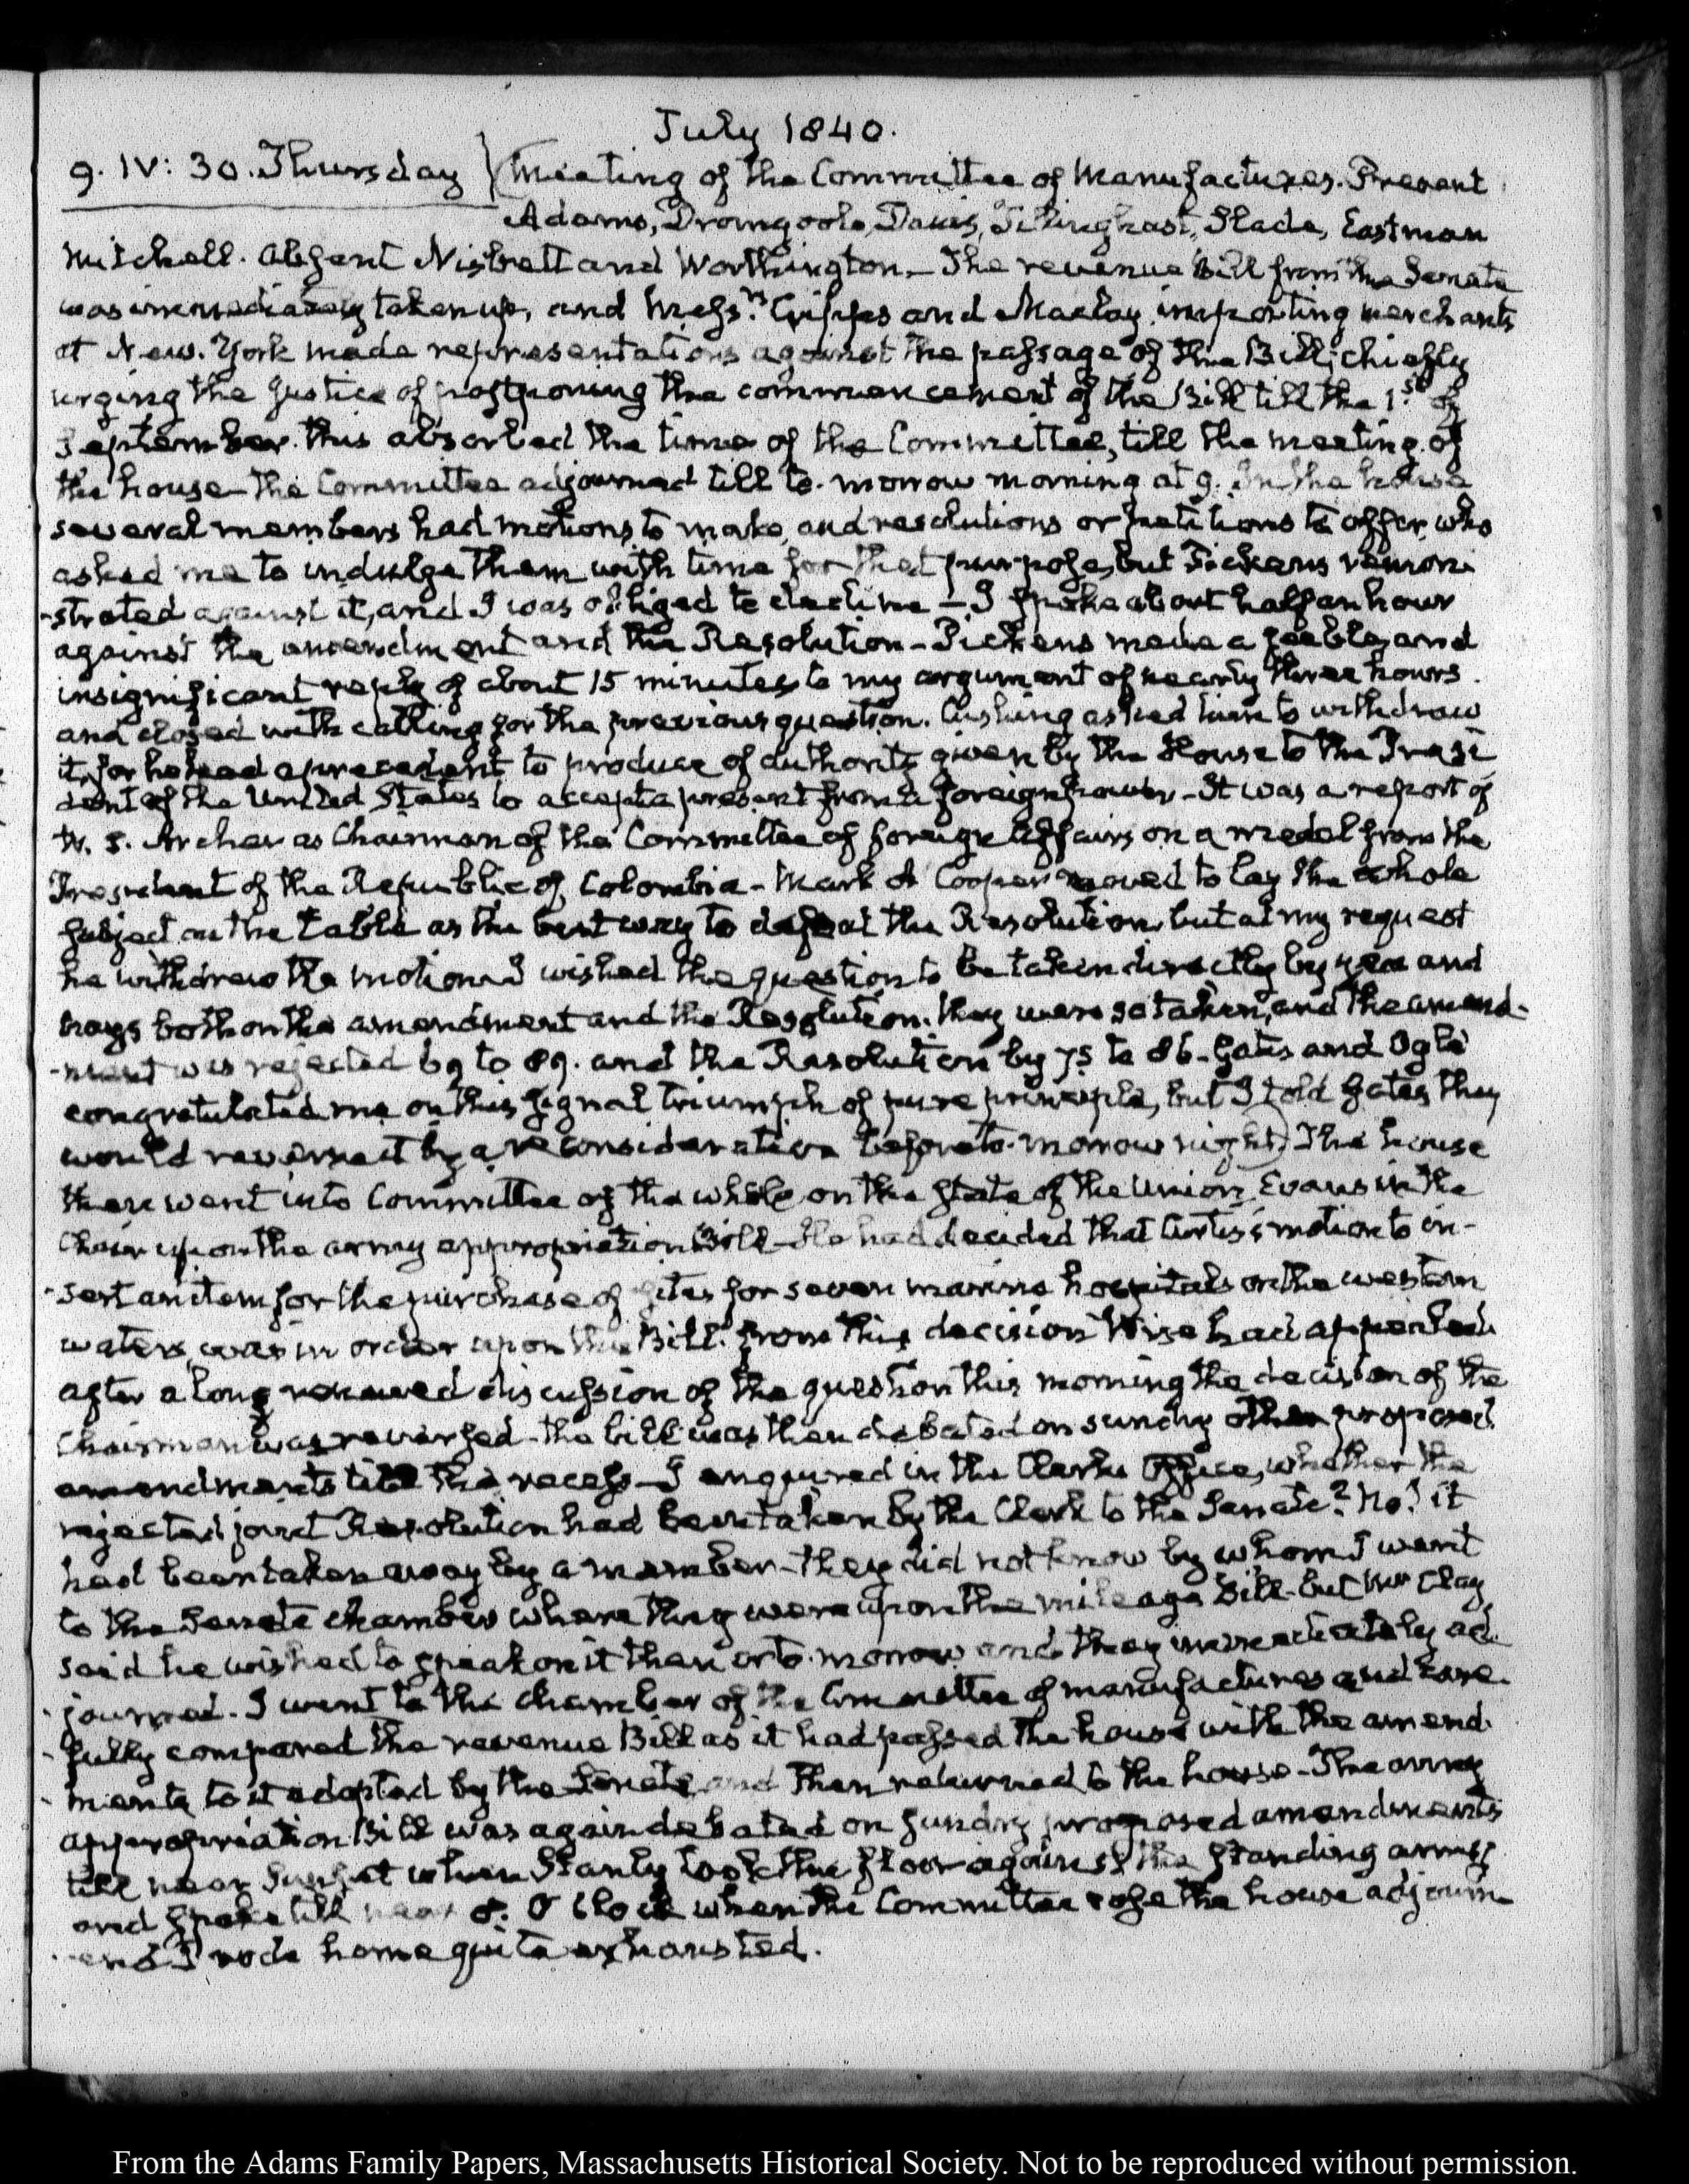 July 1840.
9. IV: 30. Thursday } Meeting of the Committee of Manufactures. Present
Adams, Dromgoole, Davis, Tillinghast, Slade, Eastman
Mitchell. absent Nisbett and Worthington. The revenue Bill from the Senate
was immediately taken up, and Messrs. and Maclay importing merchants
at New-York made representations against the passage of the Bill; chiefly
urging the justice of postponing the commencement of the Bill till the 1st of
September. this absorbed the time of the Committee, till the meeting of
the house—The Committee adjourned till to-morrow morning at 9. In the house
several members had motions to make, and resolutions or petitions to offer, who
asked me to indulge them with time for that purpose, but Pickens remon-
-strated against it, and I was obliged to decline—I spoke about half an hour
against the amendment and the Resolution—Pickens made a feeble, and
insignificant reply of about 15 minutes to my argument of nearly three hours.
and closed with calling for the previous question. Cushing asked him to withdraw
it, for he had a precedent to produce of authority given by the House to the Presi
dent of the United States to accept a present from a foreign power—It was a report of
W. S. Archer as Chairman of the Committee of foreign Affairs on a medal from the
President of the Republic of Colombia—Mark A Cooper moved to lay the whole
subject on the table as the best way to defeat the Resolution, but at my request
he withdrew the motion. I wished the question to be taken directly by yea and
nays both on the amendment and the Resolution. they were so taken, and the amend-
-ment was rejected 69 to 89. and the Resolution by 75 to 86—Gates and Ogle
congratulated me on this signal triumph of pure principle, but I told Gates they
would reverse it by a reconsideration before to-morrow night) The house
then went into Committee of the whole on the state of the Union, Evans in the
Chair upon the army appropriation Bill—He had decided that Curtis's motion to in-
-sert an item for the purchase of sites for seven marine hospitals on the western
waters, was in order upon this Bill. from this decision Wise had appealed
after a long renewed discussion of the question this morning the decision of the
Chairman was reversed—the bill was then debated on sundry other proposed
amendments till the recess—I enquired in the Clerks Office, whether the
rejected joint Resolution had been taken by the Clerk to the Senate? No! it
had been taken away by a member—they did not know by whom I went
to the Senate chamber where they were upon the mileage Bill—but Mr Clay
said he wished to speak on it then or to-morrow and they immediately ad
-journed. I went to the chamber of the Committee of manufactures and care-
-fully compared the revenue Bill as it had passed the house with the amend-
-ments to it adopted by the Senate and then returned to the house—The army
appropriation Bill was again debated on sundry proposed amendments
till near Sunset when Stanly took the floor against the standing army
and spoke till near 8. O'Clock when the Committee rose the house adjourn
and I rode home quite exhausted.
From the Adams Family Papers, Massachusetts Historical Society. Not to be reproduced without permission.